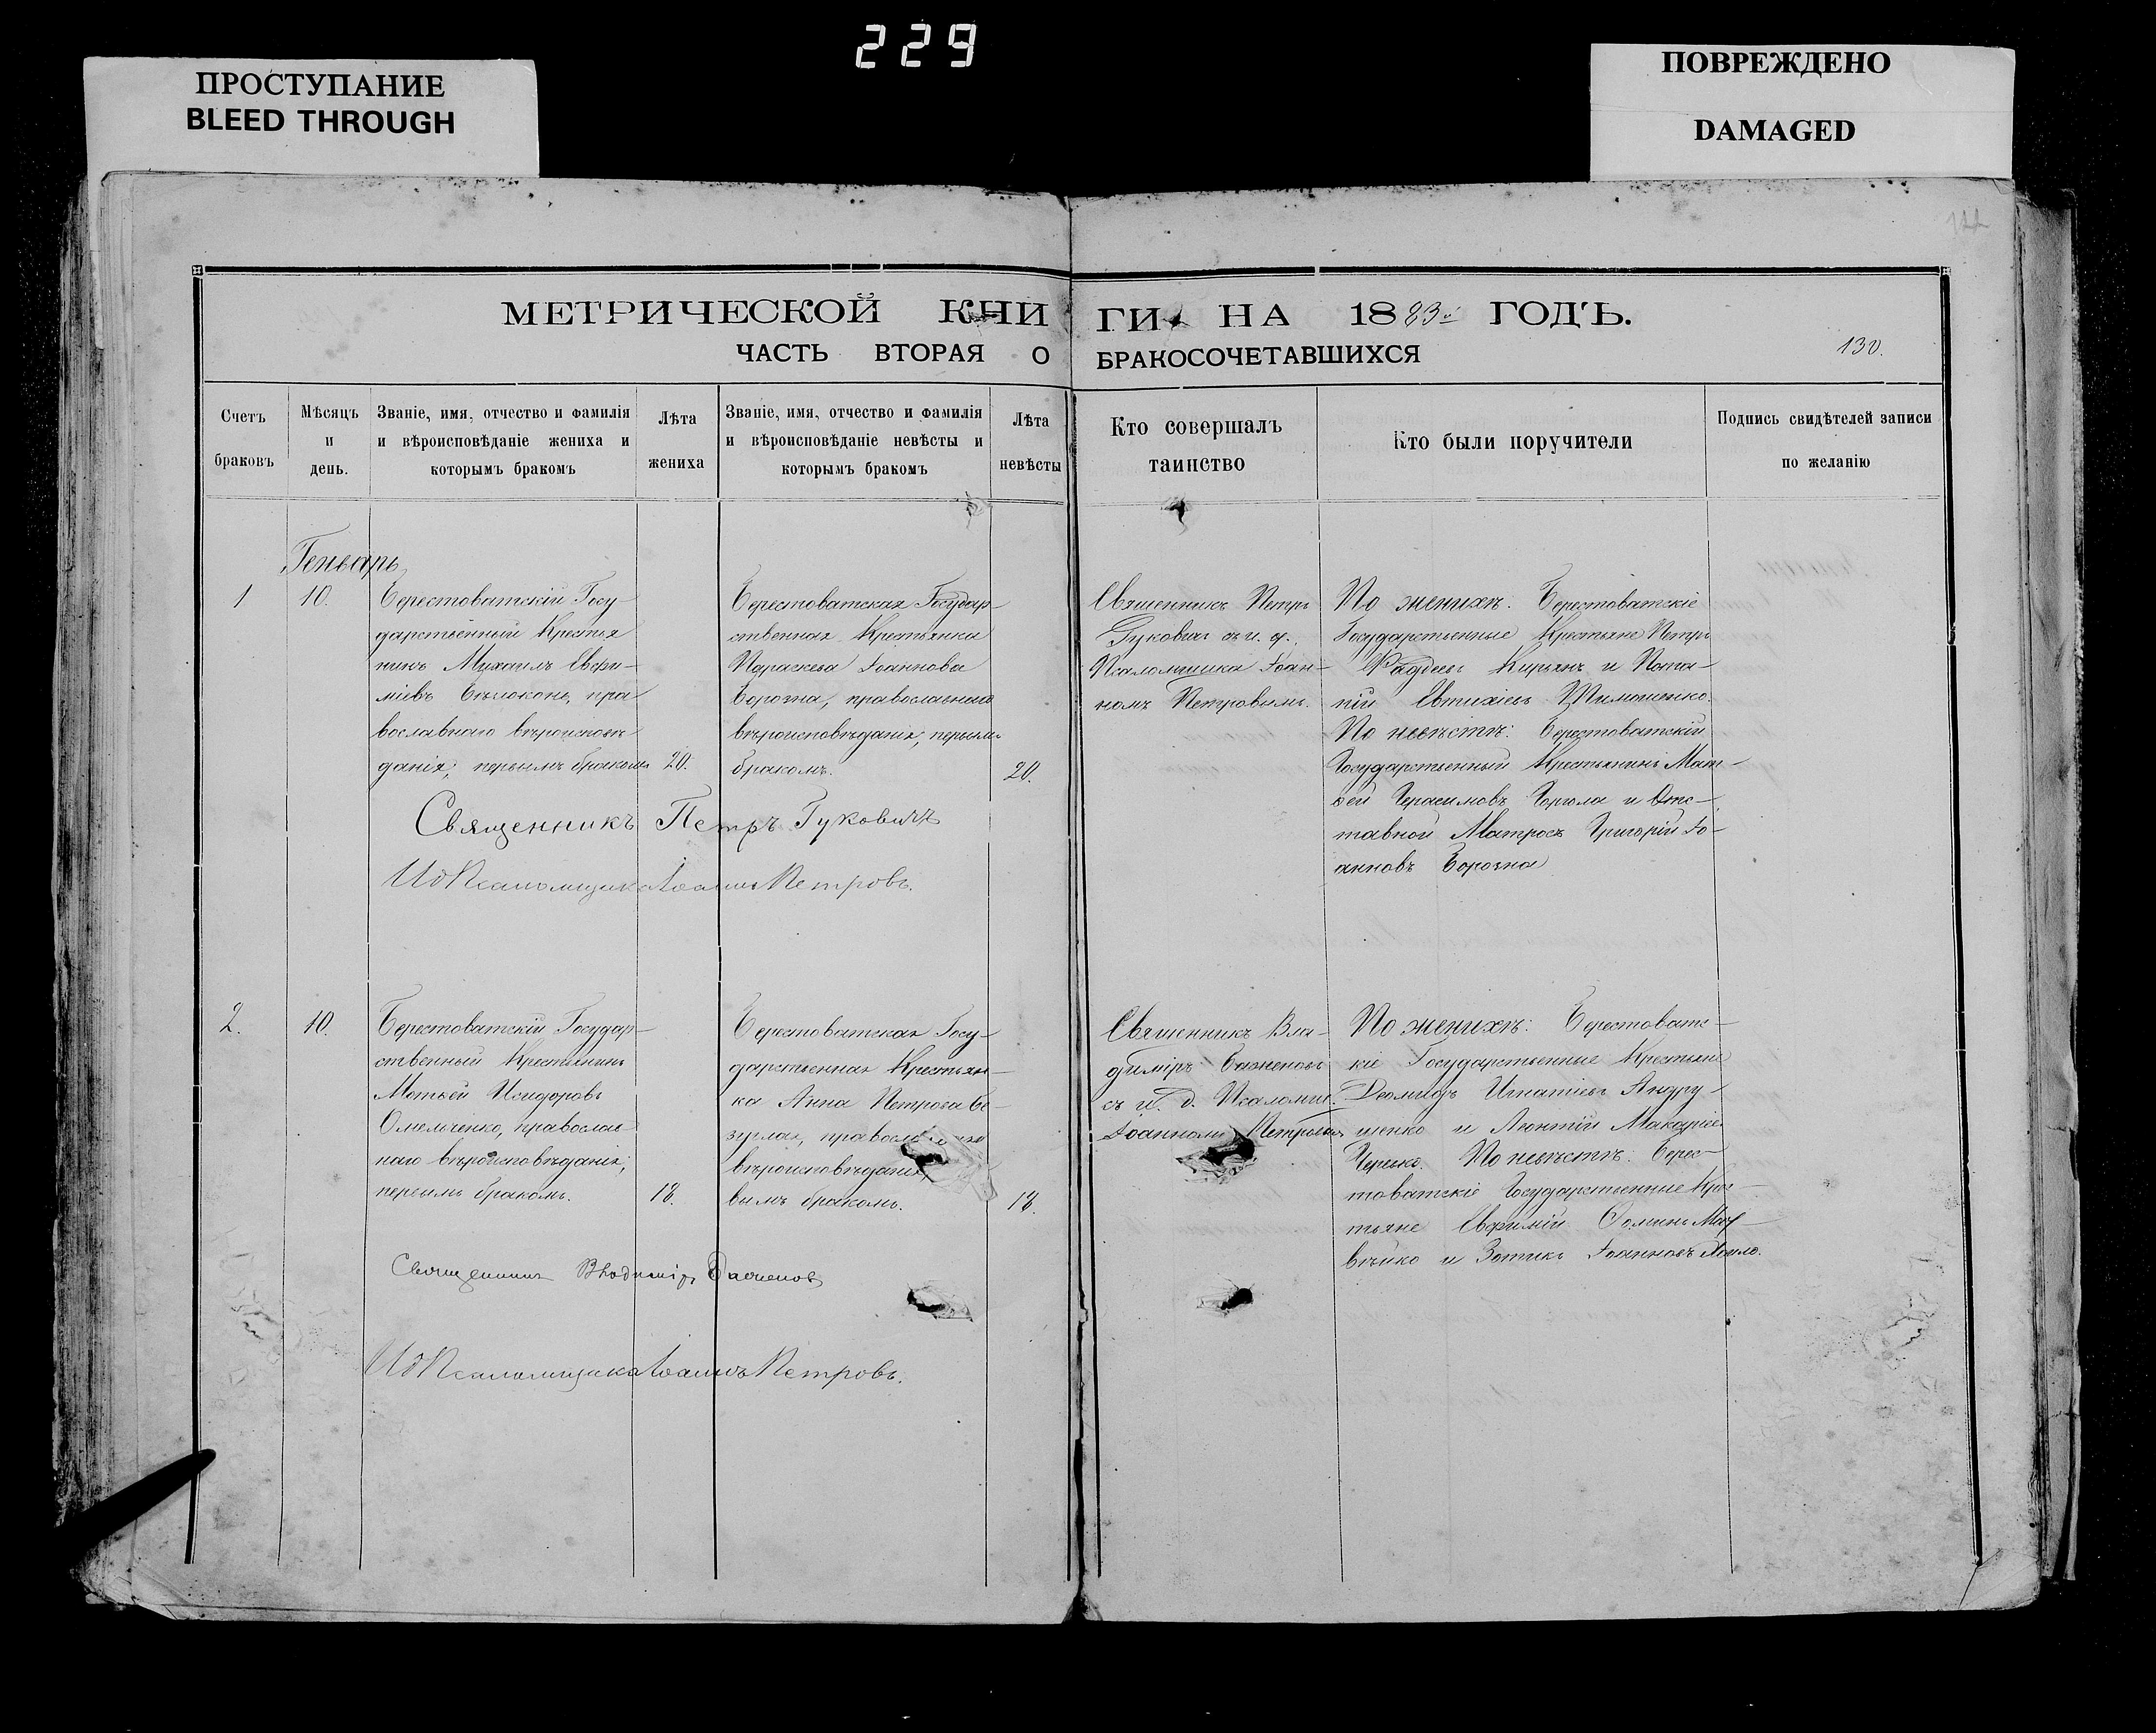 229
ПРОСТУПАНИЕ
BLEED THROUGH
ПОВРЕЖДЕНО
DAMAGED
МЕТРИЧЕСКОЙ КНИГИ НА 1883й ГОДЪ.
ЧАСТЬ ВТОРАЯ О БРАКОСОЧЕТАВШИХСЯ
130.
Счетъ
браковъ
Мѣсяцъ
и
день.
Званіе, имя, отчество и фамилія
и вѣроисповѣданіе жениха и
которымъ бракомъ
Лѣта
жениха
Званіе, имя, отчество и фамилія
и вѣроисповѣданіе невѣсты и
которымъ бракомъ
Лѣта
невѣсты
Кто совершалъ
таинство
Кто были поручители
Подпись свидѣтелей записи
по желанію
Генварь
1
10.
Берестоватскій Госу-
дарственный Крестья
нинъ Михаилъ Евфи-
міевъ Бѣлоконь, пра
вославнаго вѣроисповѣ
данія, первымъ бракомъ
20.
Берестоватская Государ-
ственная Крестьянка
Параскева Іоаннова
Борозна, православнаго
вѣроисповѣданія, первымъ
бракомъ.
20.
Священникъ Петръ
Гуковичъ съ и. д.
Псаломщика Іоан-
номъ Петровымъ.
По женихѣ: Берестоватскіе
Государственные Крестьяне Петръ
Фадѣевъ Кирьянъ и Пота-
пій Евтихіевъ Тимошенко.
По невѣстѣ: Берестоватскій
Государственный Крестьянинъ Мат-
ѳей Герасимовъ и Отс-
тавной Матросъ Григорій Іо-
анновъ Борозна
Священникъ Петръ Гуковичъ
ИдПсаломщика Іоаннъ Петровъ.
2.
10.
Берестоватскій Государ-
ственный Крестьянинъ
Матѳей Исидоровъ
Омельченко, православ
наго вѣроисповѣданія,
первымъ бракомъ.
18.
Берестоватская Госу-
дарственная Крестьян-
ка Анна Петрова Бе-
зуглая, православнаго
вѣроисповѣданія,
вымъ бракомъ.
18.
Священникъ Вла-
диміръ Баженовъ
съ и. д. Псаломщ.
Іоанномъ Петровымъ
По женихѣ: Берестоватс-
кіе Государственные Крестьяне
Деомидъ Игнатіевъ Андру-
щенко и Леонтій Макаріевъ
По невѣстѣ: Берес-
товатскіе Государственные Крес-
тьяне Евфимій Ѳоминъ Мат-
вѣйко и Зотикъ Іоанновъ
Священникъ Владиміръ Баженовъ
ИдПсаломщика Іоаннъ Петровъ.